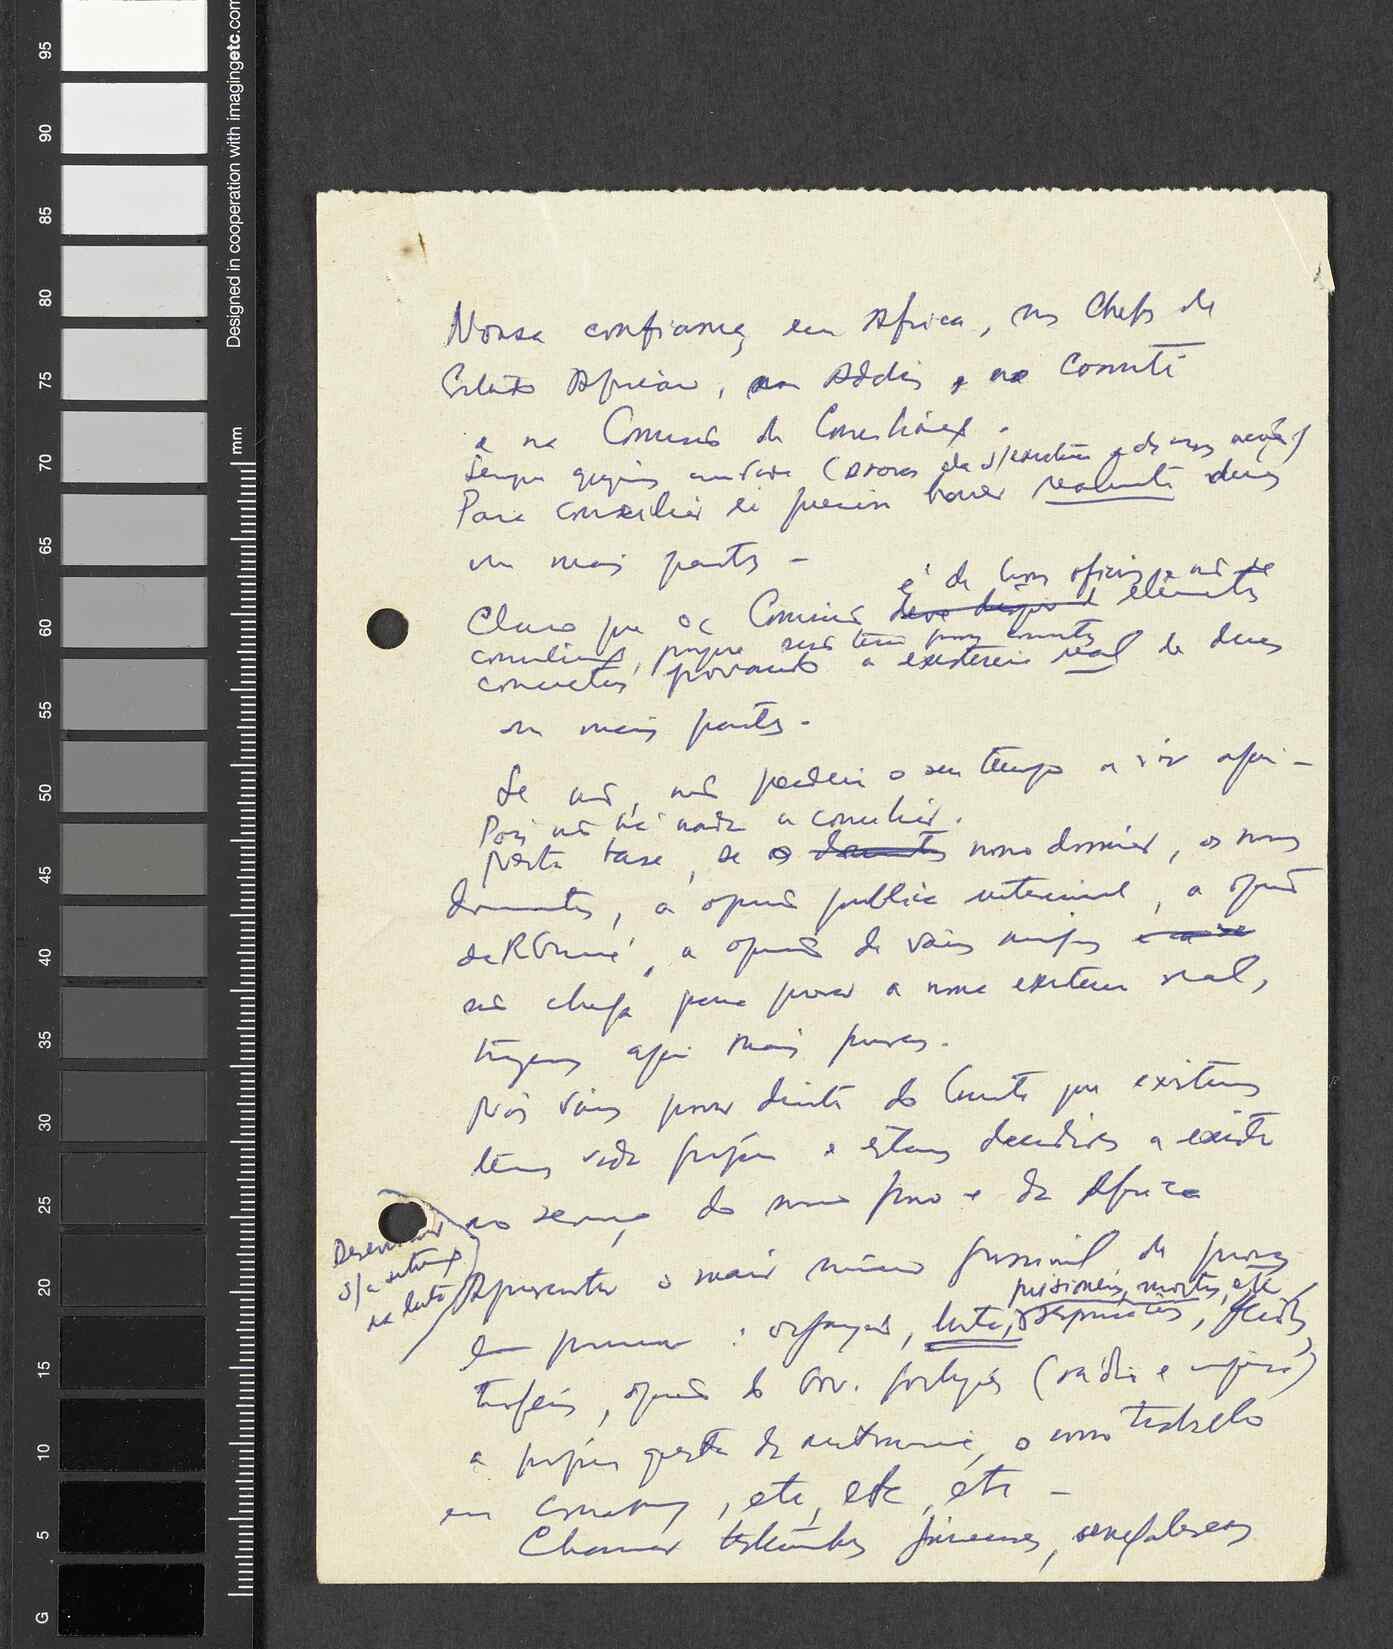 95
90
85
80
75
70
65
60
55
50
45
40
35
30
25
20
15
10
5
G
Designed in cooperation with imagingetc.com
mm
Nossa confiança em Africa, nos Chefes de
Estado Africanos, em Addis, no Comité
e na Comissão de Conciliação.
Sempre
Para conciliar é preciso haver realmente duas
ou mais partes –
é de bons ofícios e não de
Claro que a Comissão elementos
conciliação, porque
concretos provando a existência real de duas
ou mais partes.
Se não, não perderia o seu tempo a vir aqui –
Pois não há nada a conciliar.
Nesta base, se o nosso dossier, os nossos
documentos, a opinião publica internacional, a opinião
da R Guiné, a opinião de vários amigos
não chega para provar a nossa existência real,
trazemos aqui mais provas.
Nós vamos provar diante do Comité que existimos
temos vida própria e estamos decididos a existir
ao serviço do nosso povo e da Africa
Desenvolver
s/a situação
na luta
Apresentar o maior número possível de provas
prisioneiros, mortos, etc
em primeiro : organização, luta, feridos,
troféus, opinião do Gov. português (rádio e
a própria questão da autonomia, o nosso trabalho
em , etc, etc, etc –
Chamar testemunhos guineenses, senegaleses